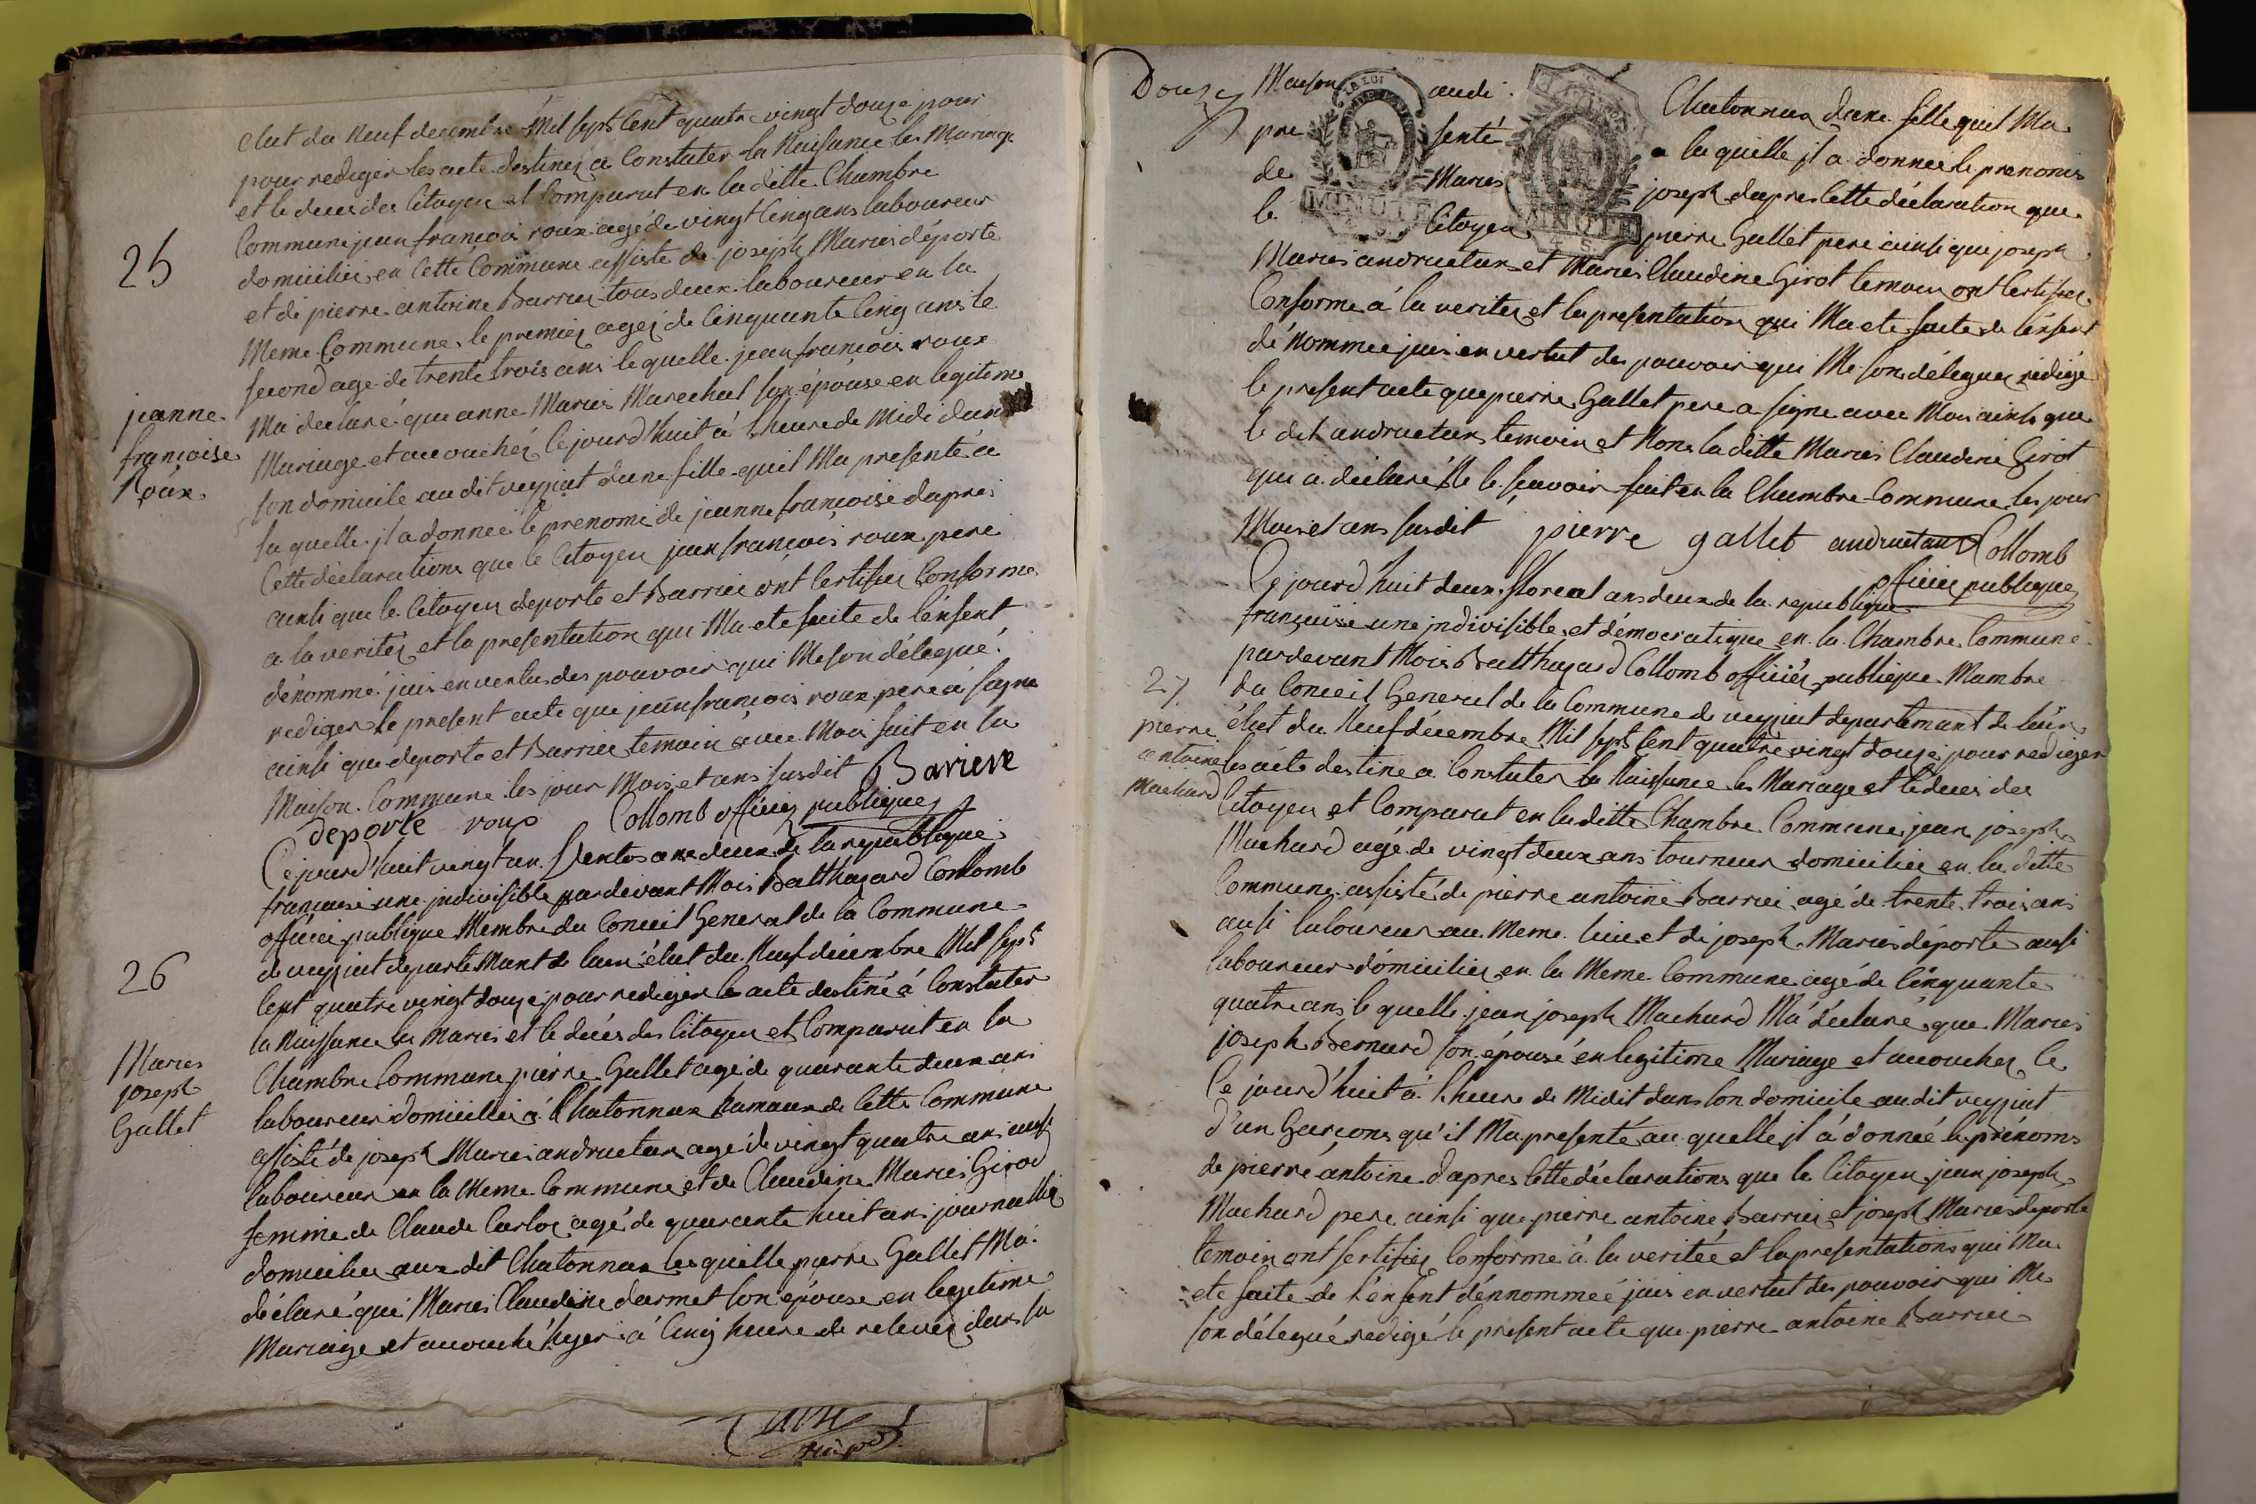 elut du neuf decembre Mil sept Cent quatre vingt douze pour
pour rediger les acte destinez a Constater la Naisance les Mariage
et le deces des Citoyen et Comparut en la ditte Chambre
Commune jean francois roux agé de vingt Cinq ans laboureur
domicilier en Cette Commune assiste de joseph Maries déporte
et de pierre antoine Barrier tous deux laboureur en la
Meme Commune le premier agez de Cinquante Cinq ans le
second age de trente trois ans le quelle jean francois roux
Ma declaré que anne Maries Marechal son épouse en legitime
Mariage et accouchéz Ce jourd'huit à l'heure de Midi dans
son domicile audit veyziat d'une fille qu'il Ma presenté a
la quelle jl a donnee le prenome de jeanne francoise dapres
Cette déclarations que le Citoyen jean francois roux pere
ainsi que le Citoyen deporte et Barrier ont Certifier Conforme
a la veritez et la presentation qui Ma ete faite de l'enfent
dénommé jais en vertus des pouvoir qui Me son délégué
rediger le present acte que jean francois roux pere a signe
ainsi que deporte et Barrier temoin avec Moi fait en la
Maison Commune les jour Mois et ans susdit Bariere
deporte roux Collomb officiez publique
25
jeanne
francoise
Roux
Ce jourd'huit vingt un Ventos ans deux de la republique
francaise une jndivisible pardevant Mois Balthazard Collomb
officier publique Membre du Conceil General de la Commune
de veyziat departeMant de lain élut du Neuf décembre Mil sept
Cent quatre vingt douze pour rediger les acte destiné à Constater
la Naissance les Maries et le deces des Citoyen et Comparut en la
Chambre Commune pierre Gallet agé de quarante deux ans
laboureur domicilié à Chatonnax hamaux de Cette Commune
assisté de joseph Maries andruetan agé de vingt quatre ans aussi
laboureur en la Meme Commune et de Claudine Maries Girod
femme de Claude Carloz agé de quarante huit ans journallié
domicilier aux dit Chatonnax les quelle pierre Gallet Ma
déclaré que Maries Claudine darmet son épouse en legitime
Mariage et accouché hyer à Cinq heure de relevez dans sa
26
Maries
joseph
Gallet
Douze
Maison audi Chatonnax d'une fille quil Ma
pre senté a la quelle jl a donnee le prenoms
de Maries joseph dapres Cette déclaration que
le Citoyen pierre Gallet pere ainsi que joseph
Maries andruetan et Maries Claudine Girot temoin ont Certifier
Conforme à la veritez et la presentation qui Ma ete faite de l'enfent
dé Nommée jais en vertut des pouvoir qui Me son déleguez rédigé
le present acte que pierre Gallet pere a signe avec Moi ainsi que
le dit andruetan temoin et Non la ditte Maries Claudine Girot
qui a déclaré Ne le scavoir fait en la Chambre Commune les jour
Mois et ans susdit pierre gallet andruetan Collomb
officier publique
Ce jourd'huit deux floreal ans deux de la republique
francaise une jndivisible et démocratique en la Chambre Commune
pardevant Mois Balthazard Collomb officiéz publique Mambre
du Conceil General de la Commune de veyziat departemant de lain
élut du Neuf décembre Mil sept Cent quatre vingt douze pour rediger
les acte destine a Constater la Naissance les Mariage et le deces des
Citoyen et Comparut en la ditte Chambre Commune jean joseph
Machard agé de vingt deux ans tourneur domicilier en la ditte
Commune assisté de pierre antoine Barrier agé de trente trois ans
ausi laboureur au Meme lieu et de joseph Maries déporte ausi
laboureur domicilier en la Meme Commune agé de Cinquante
quatre ans le quelle jean joseph Machard Ma déclaré que Maries
joseph Bernard son épouse en legitime Mariage et accouchez le
Ce jourd'huit à l'heure de Midit dans son domicile au dit veyziat
d'un Garçons qu'il Ma presenté au quelle jl à donneé le prénoms
de pierre antoine d'apres Cette déclarations que le Citoyen jean joseph
Machard pere ainsi que pierre antoine Barrier et joseph Maries deporte
temoin ont Certifiez Conforme à la veriteé et la presentations qui Ma
ete faite de l'énfent dénnommeé jais en vertut des pouvoir qui Me
son délegué redigé le present acte que pierre antoine Barrier
27
pierre
antoine
Machard
MINUTE
MINUTE